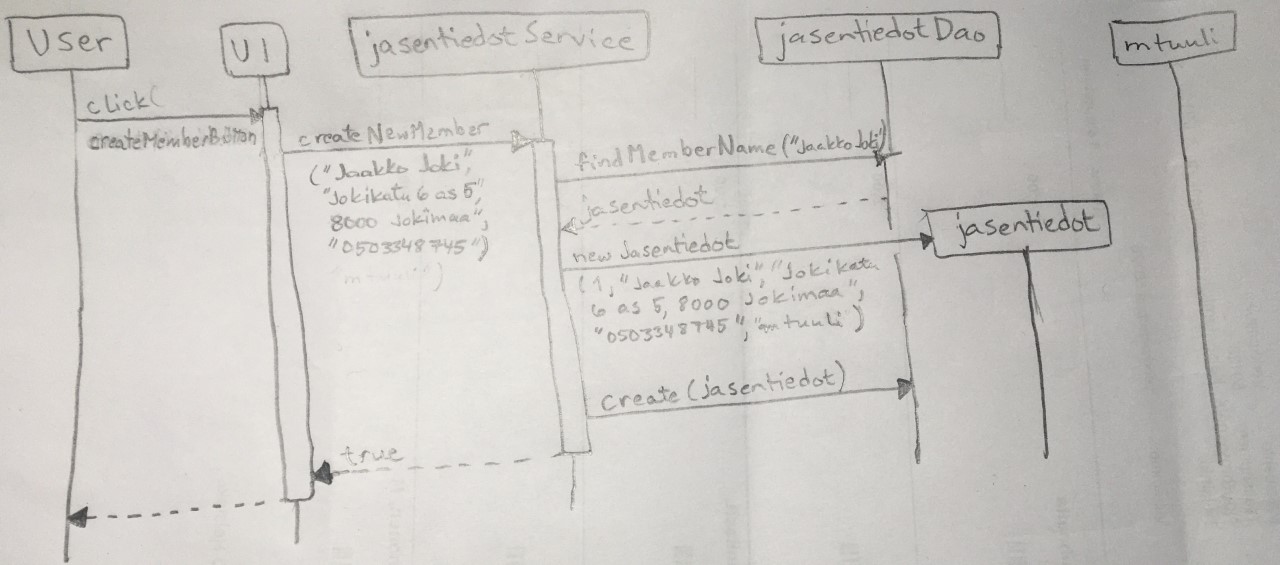 User
UI
jasentiedotService
jasentiedotDao
mtuuli
click(
createMemberButton
createNewMember
("Jaakko Joki",
"Jokikatu 6 as 5,
8000 Jokimaa",
"0503348745")
findMemberName("Jaakko Joki")
jasentiedot
new Jasentiedot
(1, "Jaakko Joki", "Jokikatu
6 as 5, 8000 Jokimaa",
"0503348745", "mtuuli")
jasentiedot
create(jasentiedot)
true